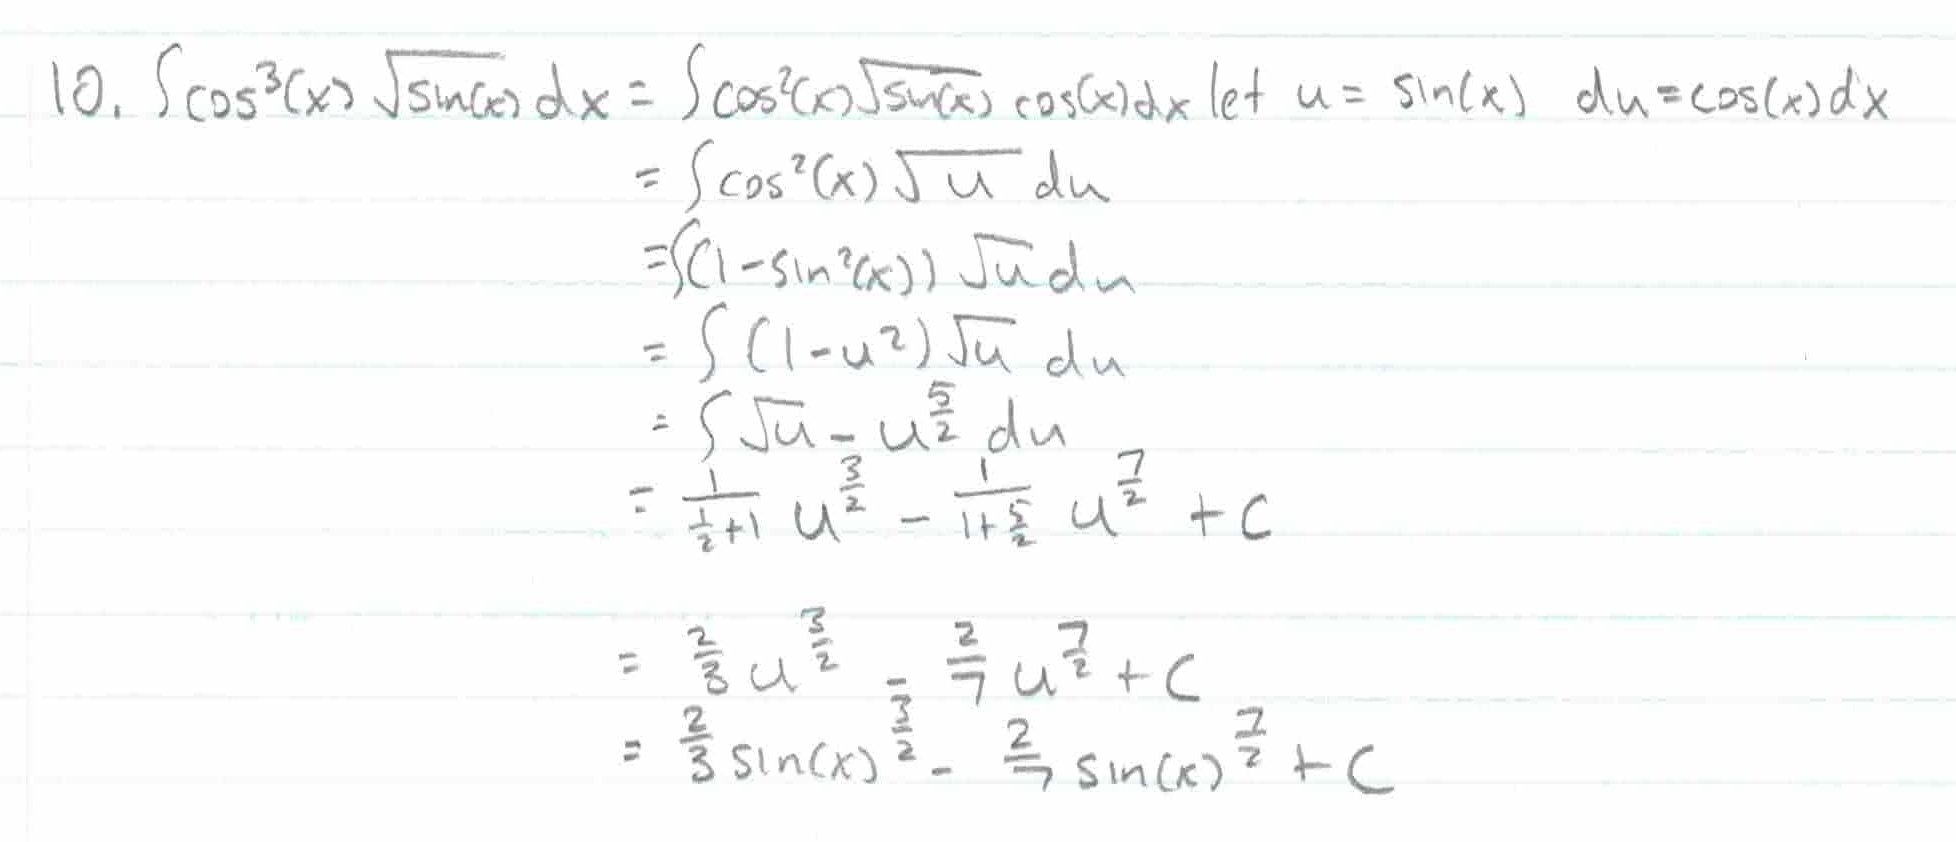 10. ∫cos³(x)√sin(x) dx = ∫cos²(x)√sin(x) cos(x)dx let u = sin(x) du = cos(x)dx
= ∫cos²(x)√u du
= ∫(1-sin²(x))√u du
= ∫(1-u²)√u du
= ∫√u - u^(5/2) du
= 1/(1/2+1) u^(3/2) - 1/(1+5/2) u^(7/2) + C
= 2/3 u^(3/2) - 2/7 u^(7/2) + C
= 2/3 sin(x)^(3/2) - 2/7 sin(x)^(7/2) + C